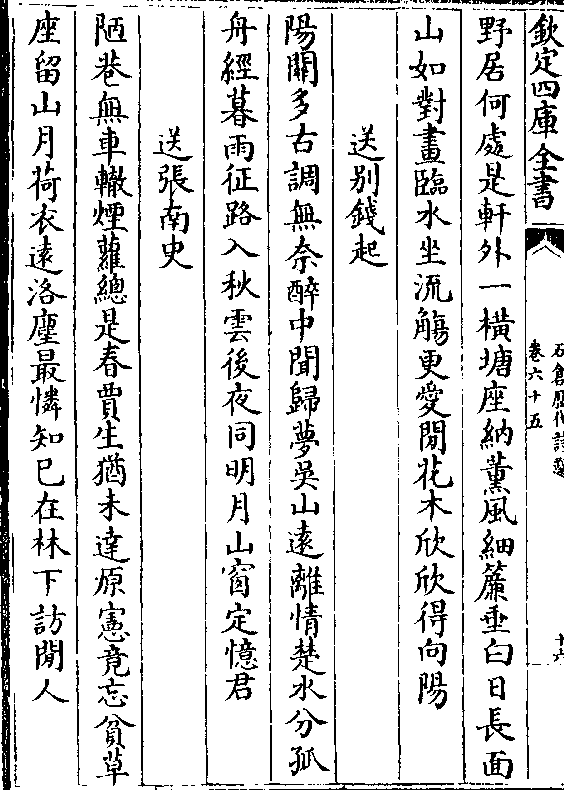 欽定四庫全書
石倉歷代詩選
卷六十五
十六
野居何處是軒外一橫塘座納薰風細簾垂白日長面
山如對畫臨水坐流觴更愛閒花木欣欣得向陽
送別錢起
陽關多古調無奈醉中聞歸夢吳山遠離情楚水分孤
舟經暮雨征路入秋雲後夜同明月山窗定憶君
送張南史
陋巷無車轍煙蘿總是春賈生猶未達原憲竟忘貧草
座留山月荷衣遠洛塵最憐知已在林下訪閒人